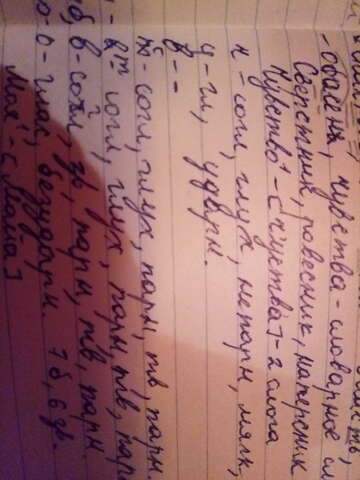 чувства-словарное
Сверстник, ровесник, наперсник
Чувство - [ч'уства] - 2 слога
ч - согл, глух, непарн, мягк,
у - гл, ударн.
в - -
с - согл, глух, парн, тв, парн.
т - согл, глух, парн, тв, пар
в - согл, зв, парн, тв, парн
о - глас, безударн. 7 б, 6 зв.
Моя - [майа]